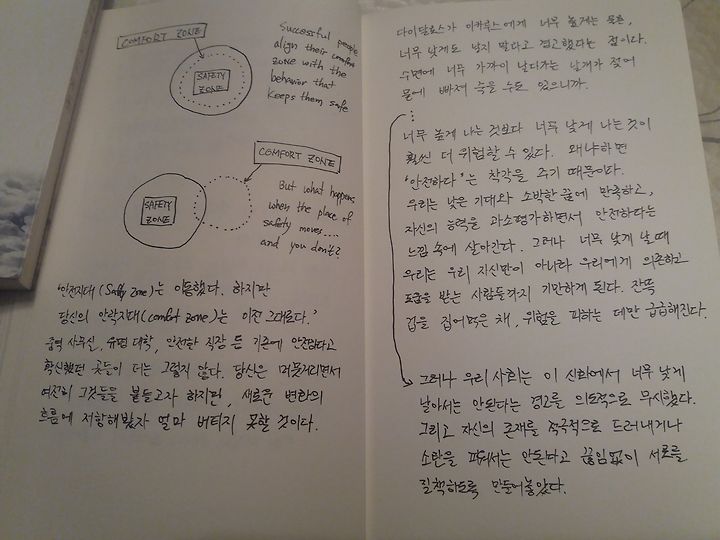 COMFORT ZONE
SAFETY
ZONE
Successful people
align their comfort
zone with the
behavior that
keeps them safe
COMFORT ZONE
SAFETY
ZONE
But what happens
when the place of
safety moves....
and you don't?
'안전지대 (Safety Zone)는 이동했다. 하지만
당신의 안락지대(comfort zone)는 이전 그대로다.'
중역 사무실, 유명 대학, 안전한 직장 등 기존에 안전하다고
확신했던 곳들이 더는 그렇지 않다. 당신은 머뭇거리면서
여전히 그것들을 붙들고자 하지만, 새로운 변화의
흐름에 저항해봤자 얼마 버티지 못할 것이다.
다이달로스가 이카루스에게 너무 높게는 물론,
너무 낮게도 날지 말라고 경고했다는 점이다.
수면에 너무 가까이 날다가는 날개가 젖어
물에 빠져 죽을 수도 있으니까.
너무 높게 나는 것보다 너무 낮게 나는 것이
훨씬 더 위험할 수 있다. 왜냐하면
'안전하다'는 착각을 주기 때문이다.
우리는 낮은 기대와 소박한 꿈에 만족하고,
자신의 능력을 과소평가하면서 안전하다는
느낌 속에 살아간다. 그러나 너무 낮게 날 때
우리는 우리 자신만이 아니라 우리에게 의존하고
도움을 받는 사람들까지 기만하게 된다. 잔뜩
겁을 집어먹은 채, 위험을 피하는 데만 급급해진다.
그러나 우리 사회는 이 신화에서 너무 낮게
날아서는 안된다는 경고를 의도적으로 무시했다.
그리고 자신의 존재를 적극적으로 드러내거나
소란을 피워서는 안된다고 끊임없이 서로를
질책하도록 만들어놓았다.